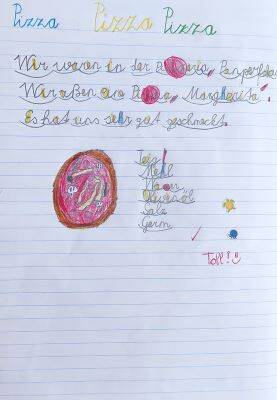 Pizza Pizza Pizza
Wir waren in der
Wir aßen eine Pizza Margherita.
Es hat uns sehr gut geschmeckt.
Teig
Mehl
Wasser
Olivenöl
Salz
Germ
Toll!